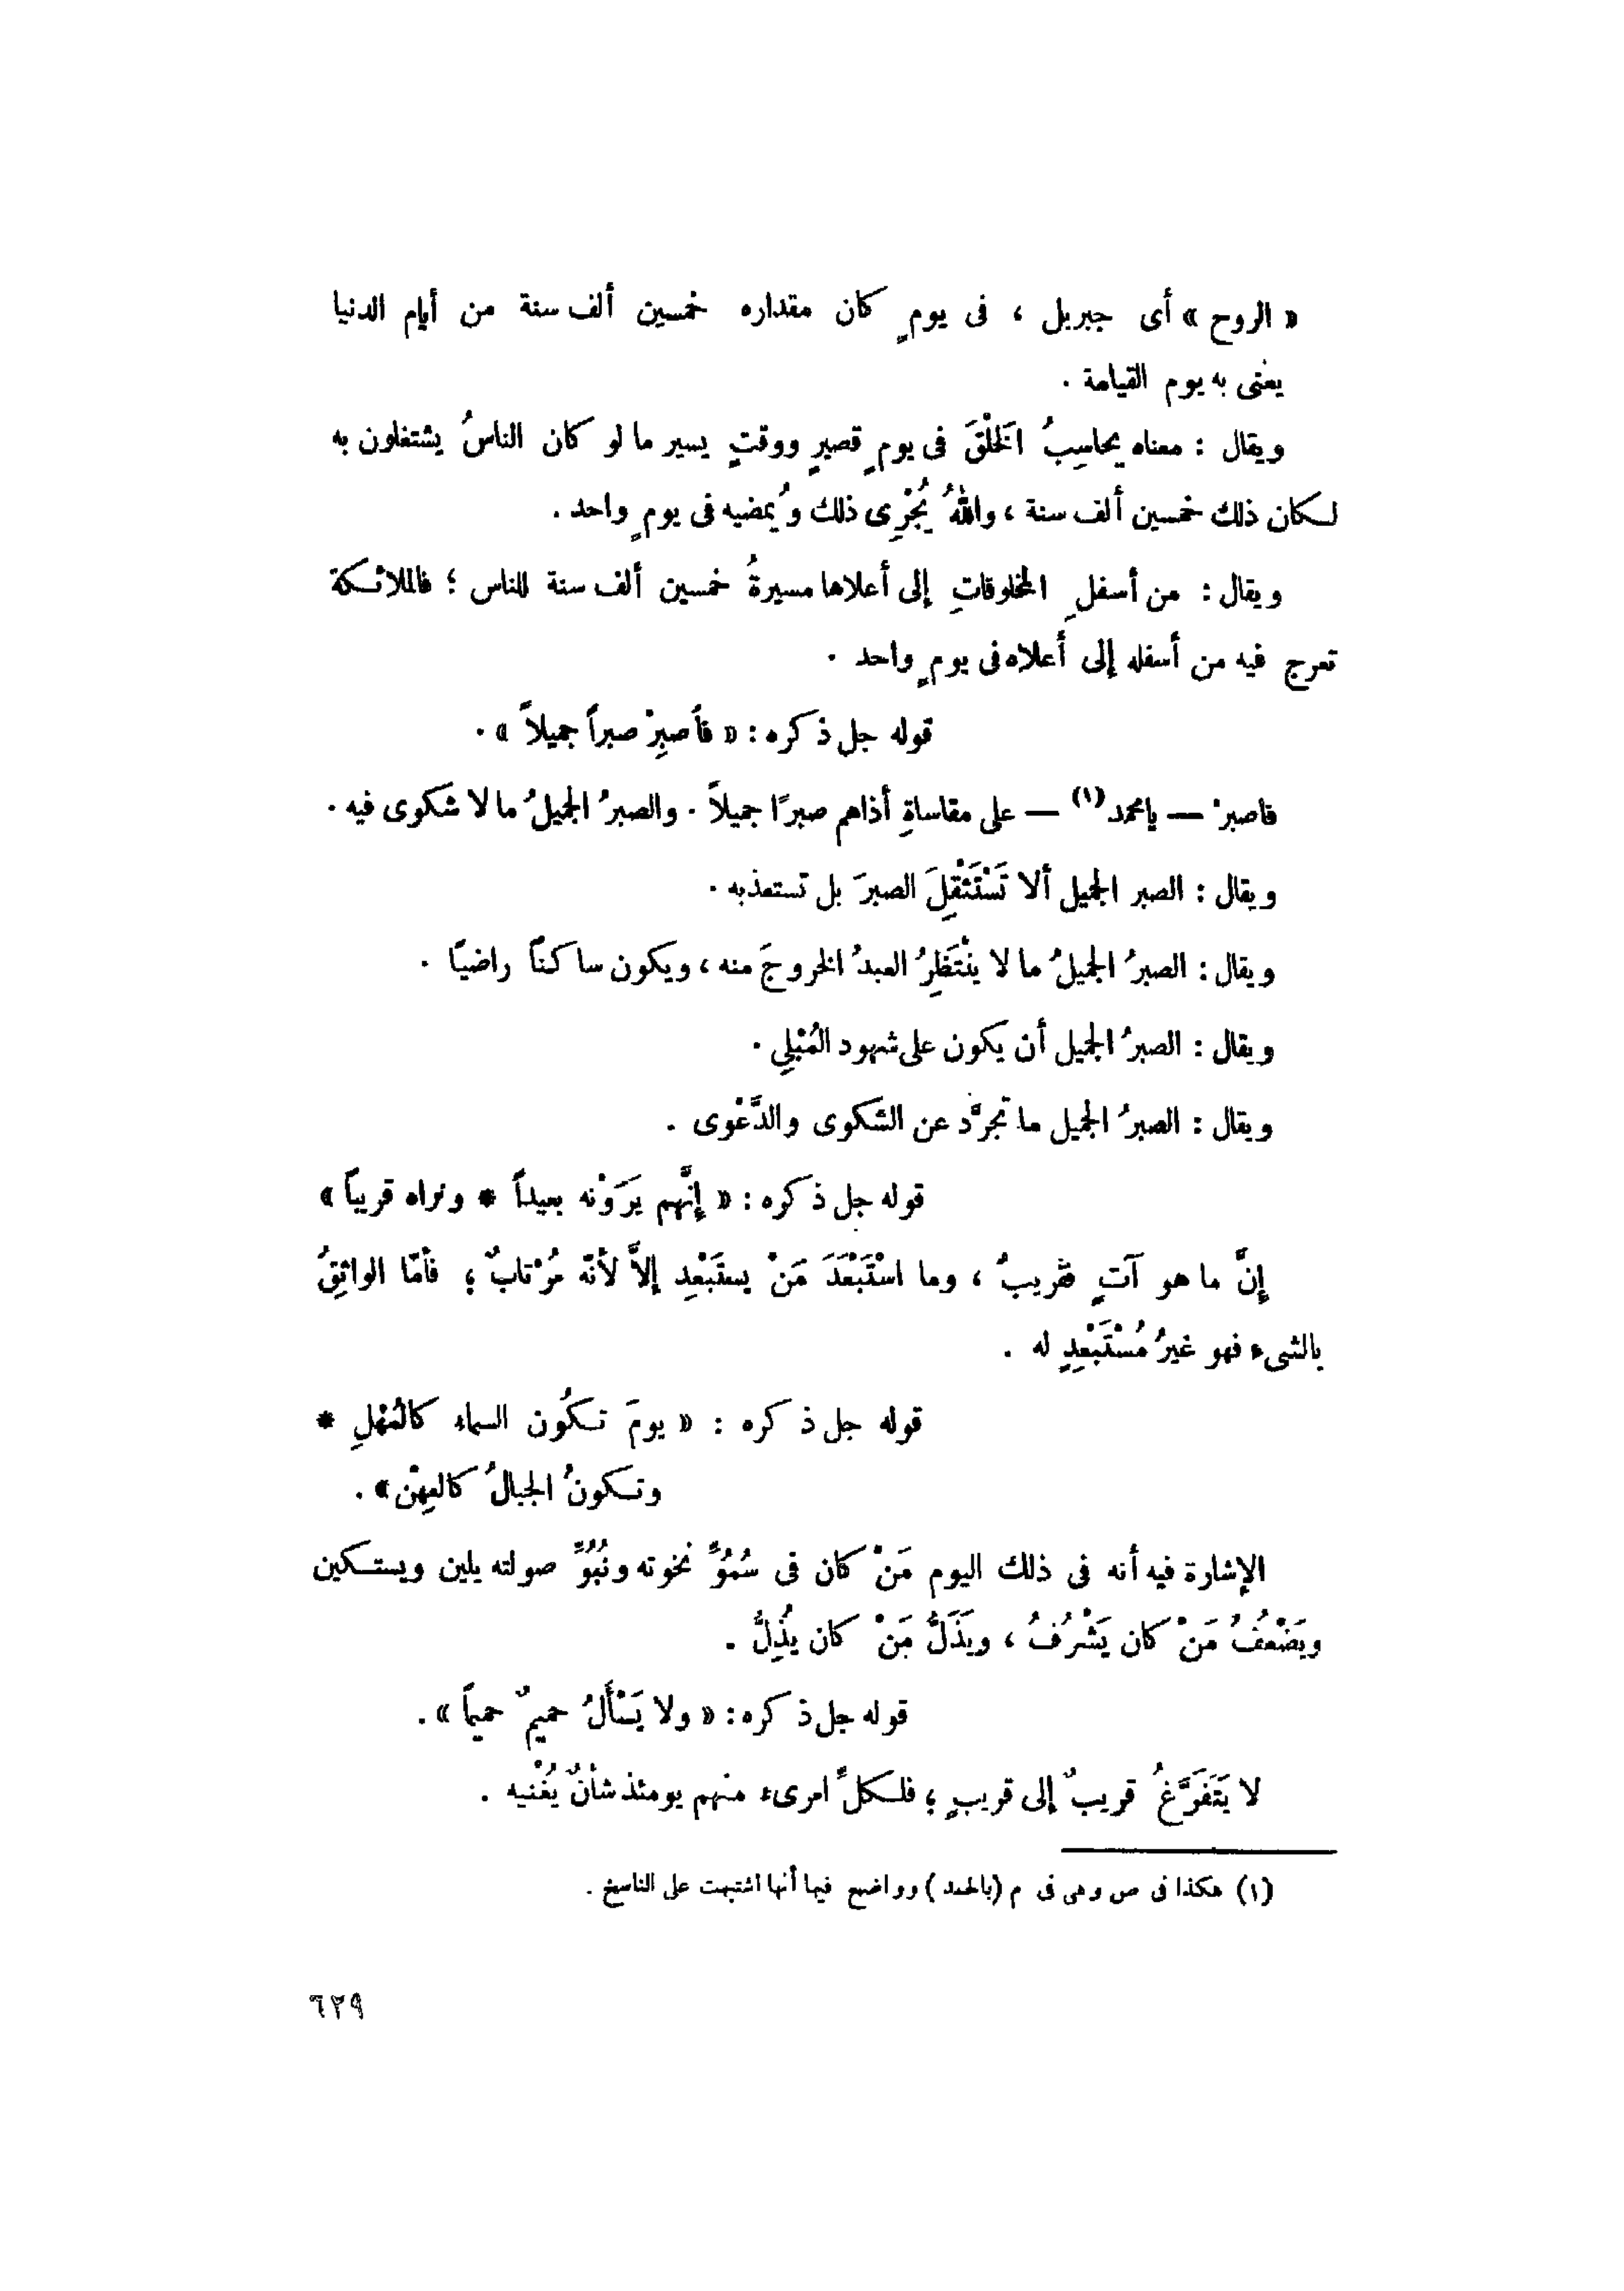 « الروح » أى جبريل ، فى يومٍ كان مقداره خمسين ألف سنة من أيام الدنيا
يعنى به يوم القيامة .
ويقال : معناه يحاسِبُ الخَلْقَ فى يومٍ قصيرٍ ووقتٍ يسير ما لو كان الناسُ يشتغلون به
لكان ذلك خمسين ألف سنة ، واللهُ يُجْرِى ذلك ويُمضيه فى يومٍ واحد .
ويقال : من أسفلِ المخلوقاتِ إلى أعلاها مسيرةُ خمسين ألف سنة للناس ؛ فالملائكة
تعرج فيه من أسفله إلى أعلاه فى يومٍ واحد .
قوله جل ذكره : « فاَصبِرْ صبراً جميلاً » .
فاصبرْ — يامحمد (١) — على مقاساةِ أذاهم صبرًا جميلاً . والصبرُ الجميلُ ما لا شكوى فيه .
ويقال : الصبر الجميل ألا تَسْتَثْقِلَ الصبرَ بل تستعذبه .
ويقال : الصبرُ الجميلُ ما لا ينْتَظِرُ العبدُ الخروجَ منه ، ويكون ساكناً راضيًا .
ويقال : الصبرُ الجميل أن يكون على شهود المُبْلِي .
ويقال : الصبرُ الجميل ما تجرَّد عن الشكوى والدَّعْوى .
قوله جل ذكره : « إِنَّهم يَرَوْنه بعيداً * ونراه قريباً »
إِنَّ ما هو آتٍ قريبٌ ، وما اسْتَبْعَدَ مَنْ يستَبْعِد إلاَّ لأنّه مُرْتابٌ ؛ فأمّا الواثِقُ
بالشىء فهو غيرُ مُسْتَبْعِدٍ له .
قوله جل ذكره : « يومَ تكُون السماء كالمُهْلِ *
وتكونُ الجبالُ كالعِهْن » .
الإشارة فيه أنه فى ذلك اليوم مَنْ كان فى سُمُوِّ نخوته ونُبُوِّ صولته يلين ويستكين
ويَضْعُفُ مَنْ كان يَشْرُفُ ، ويَذَلُّ مَنْ كان يُذِلُّ .
قوله جل ذكره : « ولا يَسْأَلُ حميمٌ حميماً » .
لا يَتَفَرَّغُ قريبٌ إلى قريبٍ ؛ فلكلِّ امرىء منهم يومئذ شأنٌ يُغْنيه .
(١) هكذا فى ص وهى فى م (بالحمد) وواضح فيها أنها اشتبهت على الناسخ .
٦٢٩